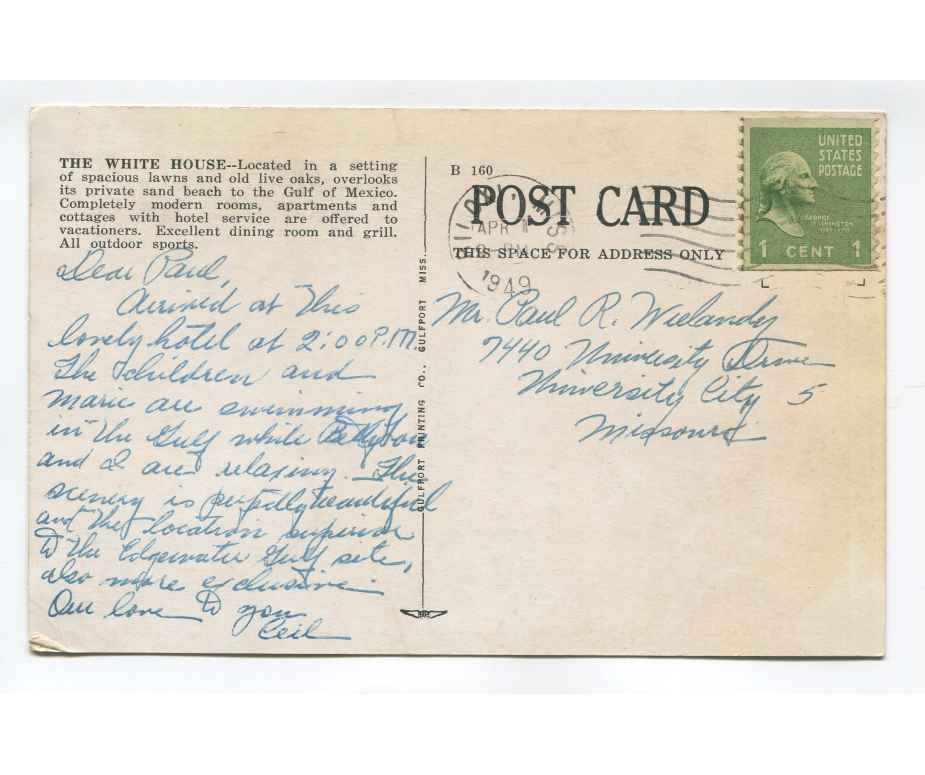 THE WHITE HOUSE--Located in a setting
of spacious lawns and old live oaks, overlooks
its private sand beach to the Gulf of Mexico.
Completely modern rooms, apartments and
cottages with hotel service are offered to
vacationers. Excellent dining room and grill.
All outdoor sports.
Dear Paul,
Arrived at this
lovely hotel at 2:00 P.M.
The children and
Marie are swimming
in the Gulf while
and I are relaxing. The
scenery is perfectly beautiful
and the location superior
to the Edgewater Gulf site,
also more exclusive.
Our love to you
Ceil
GULFPORT PRINTING CO., GULFPORT MISS.
B 160
POST CARD
THIS SPACE FOR ADDRESS ONLY
APR
PM
1949
UNITED
STATES
POSTAGE
GEORGE
WASHINGTON
1 CENT 1
Mr. Paul R. Wielandy
7440 University Drive
University City 5
Missouri